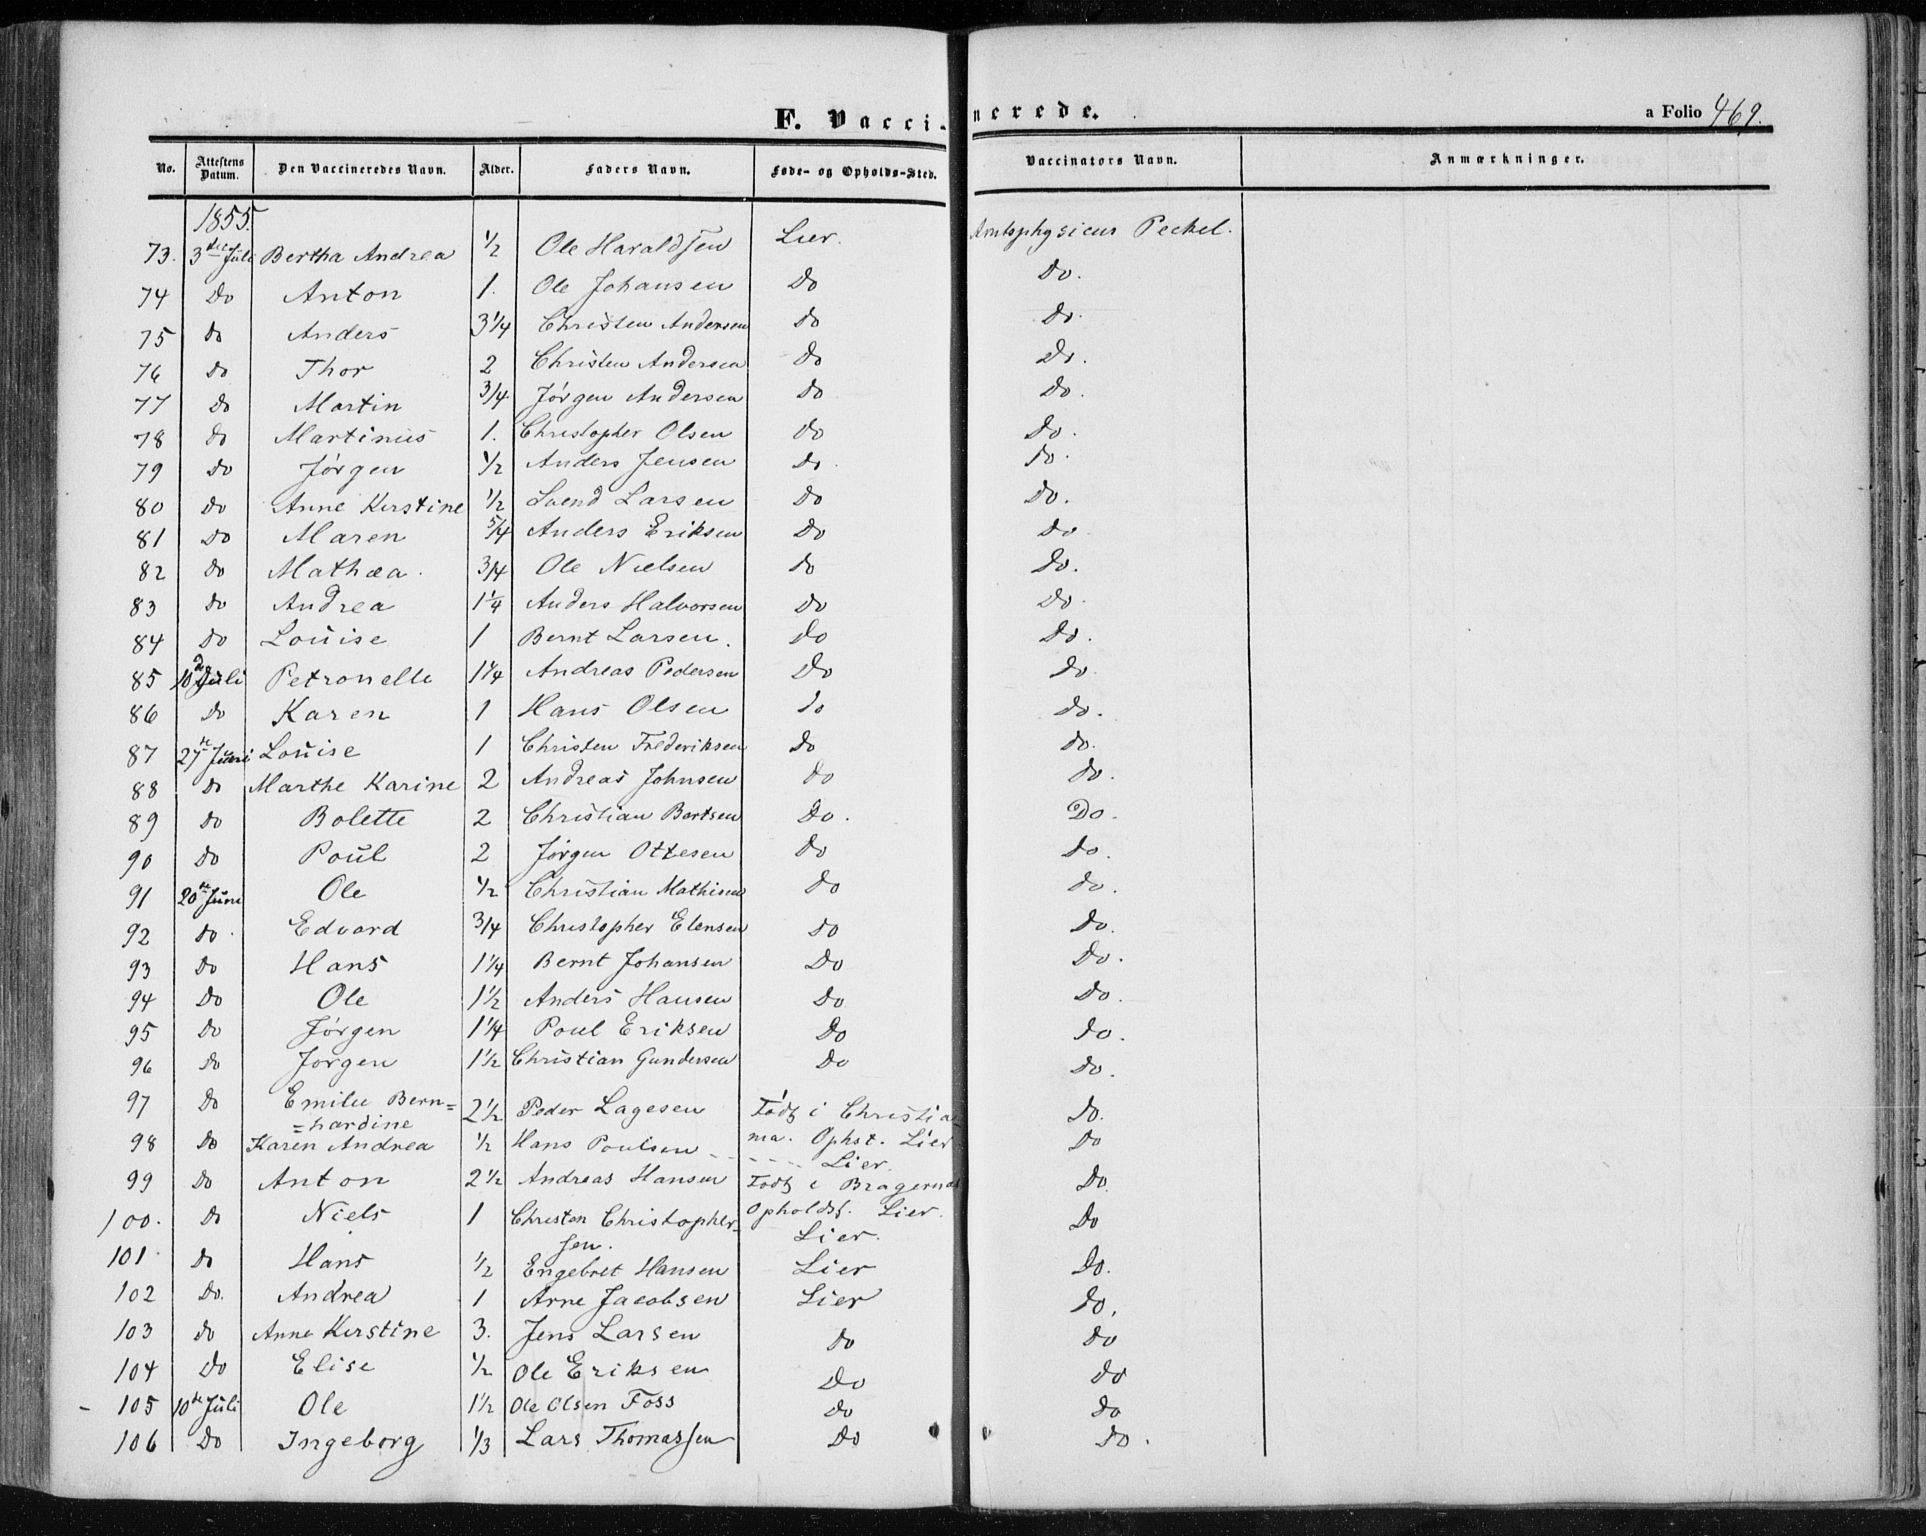 F. Vaccinerede. a Folio 469.
No. Attestens Datum. Den Vaccineredes Navn. Alder. Faders Navn. Føde- og Opholds-Sted. Vaccinators Navn. Anmærkninger.
1855.
73. 3die Juli Bertha Andrea 1/2 Ole Haraldsen Lier. Amtsphysicus Peckel.
74 Do Anton 1. Ole Johansen Do Do.
75 Do Anders 3 1/4 Christen Andersen Do Do.
76 Do Thor 2 Christen Andersen Do Do.
77 Do Martin 3/4 Jørgen Andersen Do Do.
78 Do Martinus 1. Christopher Olsen Do Do.
79 Do Jørgen 1/2 Anders Jensen Do. Do.
80 Do Anne Kirstine 1/2 Svend Larsen Do Do.
81 Do Maren 5/4 Anders Eriksen Do Do
82 Do Mathæa. 3/4 Ole Nielsen Do Do.
83 Do Andrea 1 1/4 Anders Halvorsen Do Do.
84 Do Louise 1 Bernt Larsen. Do Do.
85 10de Juli Petronelle 1 1/4 Andreas Pedersen Do Do.
86 Do Karen 1 Hans Olsen Do Do.
87 27de Juni Louise 1 Christen Frederiksen Do Do.
88 Do Marthe Karine 2 Andreas Johnsen Do Do.
89 Do Bolette 2 Christian Bertsen Do. Do.
90 Do Poul 2 Jørgen Ottesen Do Do.
91 20de Juni Ole 1/2 Christian Mathisen Do Do.
92 Do. Edvard 3/4 Christopher Elensen Do Do.
93 Do Hans 1 1/4 Bernt Johansen Do Do.
94 Do Ole 1 1/2 Anders Hansen Do Do.
95 Do Jørgen 1 1/4 Poul Eriksen Do Do.
96 Do Jørgen 1 1/2 Christian Gundersen Do Do.
97 Do Emilie Bern= 2 1/2 Peder Lagesen Født i Christia Do.
=hardine
98 Do Karen Andrea 1/2 Hans Poulsen nia. Ophst. Lier Do
Lier.
99 Do Anton 2 1/2 Andreas Hansen Født i Bragernæs Do.
100. Do Niels 1 Christen Christopher- Opholdsst. Lier. Do
sen. Lier.
101 Do Hans 1/2 Engebret Hansen Lier Do.
102 Do. Andrea 1 Arne Jacobsen Lier Do.
103 Do Anne Kirstine 3. Jens Larsen Do Do
104 Do Elise 1/2 Ole Eriksen Do Do
- 105 10de Juli Ole 1 1/2 Ole Olsen Foss Do Do
106 Do Ingeborg 1/3 Lars Thomassen Do Do.